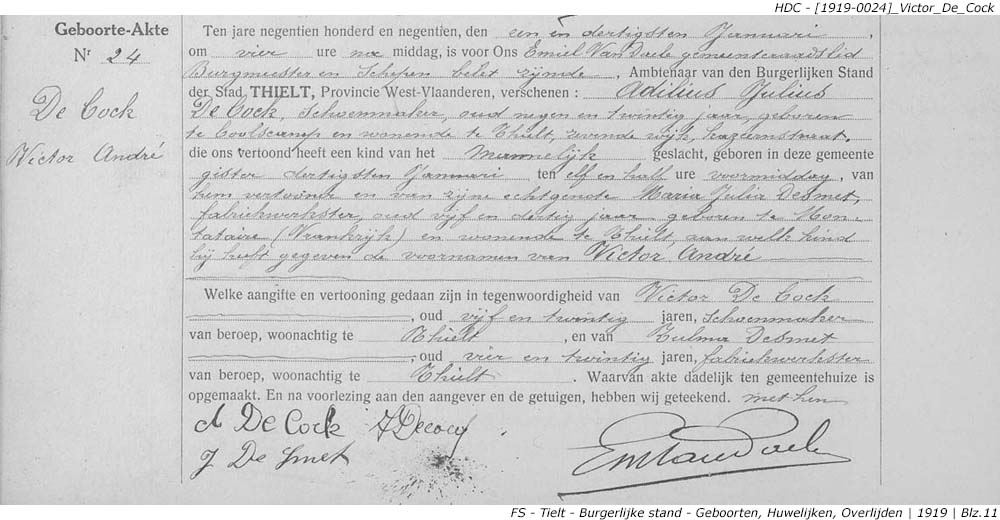 HDC - [1919-0024]_Victor_De_Cock
Geboorte-Akte
Nr 24
De Cock
Victor André
Ten jare negentien honderd en negentien, den een en dertigsten Januari,
om vier ure na middag, is voor Ons Emiel Van Daele gemeenteraadslid
Burgmeester en Schepen belet zijnde, Ambtenaar van den Burgerlijken Stand
der Stad THIELT, Provincie West-Vlaanderen, verschenen : Adilius Julius
De Cock, Schoenmaker, oud negen en twintig jaar, geboren
te Coolscamp en wonende te Thielt, zevende wijk, Kazeernstraat,
die ons vertoond heeft een kind van het Mannelijk geslacht, geboren in deze gemeente
gister dertigsten Januari ten elf en half ure voormiddag, van
hem vertooner en van zijne echtgenote Maria Julia Desmet,
fabriekwerkster, oud vijf en dertig jaar geboren te Mon-
tataire (Vrankrijk) en wonende te Thielt, aan welk kind
hij heeft gegeven de voornamen van Victor André
Welke aangifte en vertooning gedaan zijn in tegenwoordigheid van Victor De Cock
, oud vijf en twintig jaren, Schoenmaker
van beroep, woonachtig te Thielt, en van Zulma Desmet
, oud vier en twintig jaren, fabriekwerkster
van beroep, woonachtig te Thielt. Waarvan akte dadelijk ten gemeentehuize is
opgemaakt. En na voorlezing aan den aangever en de getuigen, hebben wij geteekend. met hen
A De Cock V Decock
Z De Smet
Em Van Daele
FS - Tielt - Burgerlijke stand - Geboorten, Huwelijken, Overlijden | 1919 | Blz.11